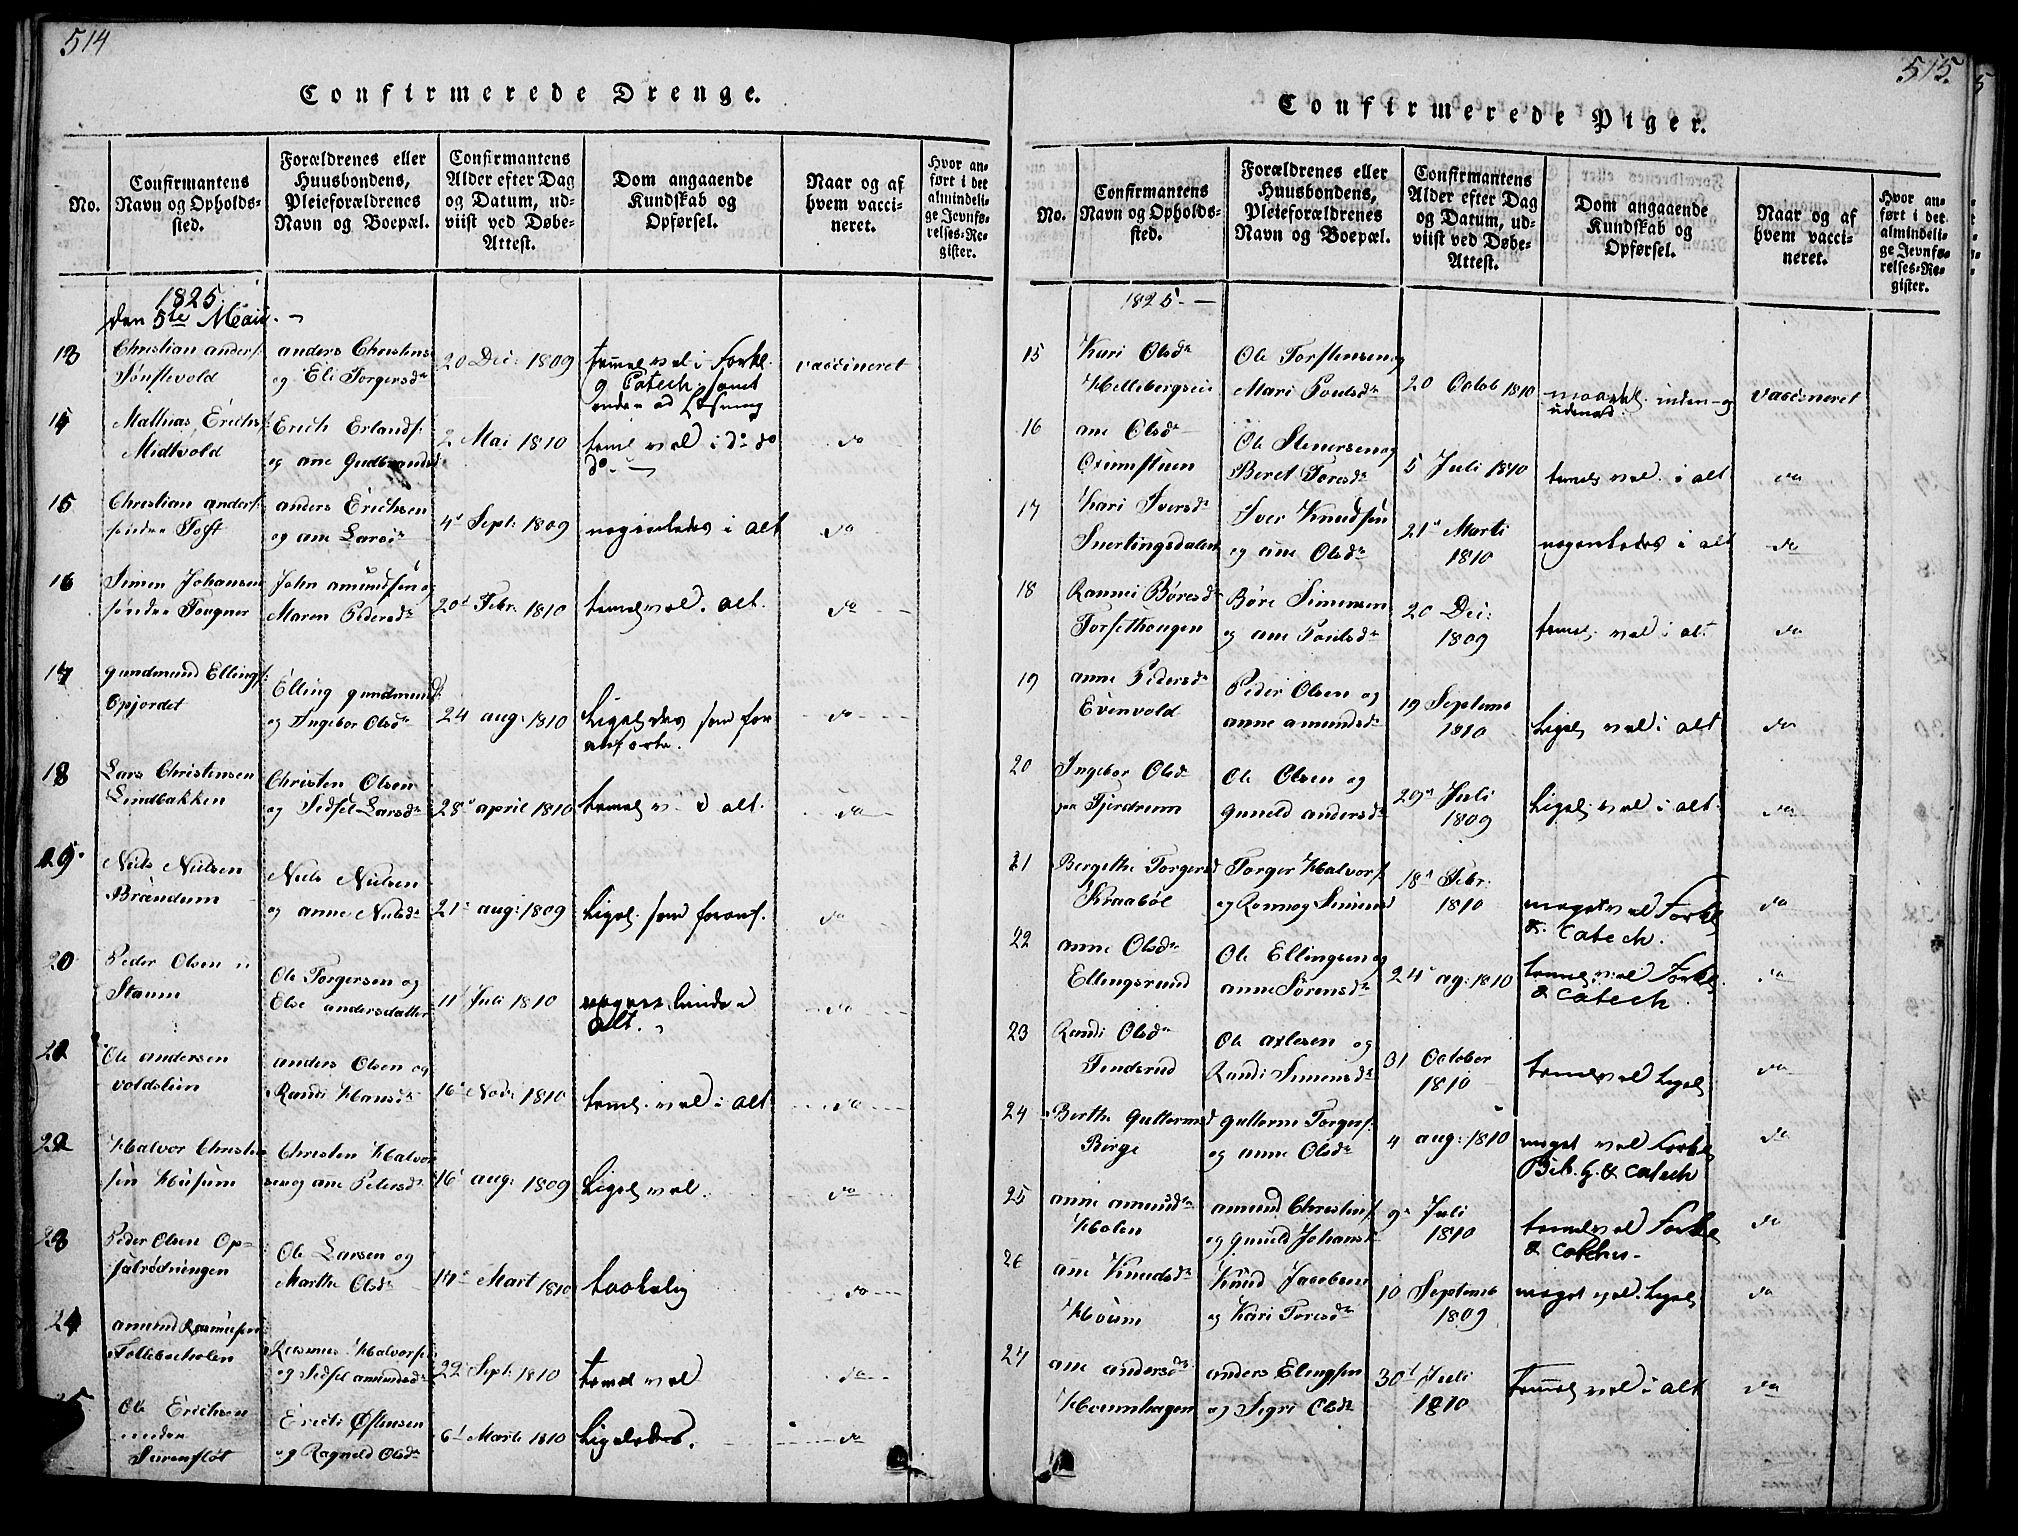 514
Confirmerede Drenge.
No.
Confirmantens Navn og Opholds-sted.
Forældrenes eller Huusbondens, Pleieforældrenes Navn og Boepæl.
Confirmantens Alder efter Dag og Datum, ud-viist ved Døbe-Attest.
Dom angaaende Kundskab og Opførsel.
Naar og af hvem vacci-neret.
Hvor an-ført i det almindeli-ge Jevnfø-relses-Re-gister.
1825.
den 5te Maii.
13 Christian anders. Tønstevold
anders Christens. og Eli Torgersdr
20 Dec: 1809
temmel vel i Forkl. og Catech. samt inden ad Læsning
vaccineret
14 Mathias Erichs. Midtvold
Erich Erlands. og ane Gudbrandsd
2 Mai 1810
teml vel i do do do
do
15 Christian anders. søndre Toft
anders Erichsen og ane Larsdr
4d Sept: 1809
nogenledes i alt
do
16 Simen Johansen søndre Fougner
John amundsen og Maren Pedersdr
20d Febr. 1810
temel vel. alt.
do
17 gundmund Ellings. Opjordet
Elling gundmunds. og Ingebor Olsdr
24 aug: 1810
Ligeledes som for anførte.
do
18 Lars Christensen Lindbakken
Christen Olsen og Sidsel Larsdr
28d april 1810
temel v. i alt.
do
19 Niels Nielsen Brændum
Niels Nielsen og anne Nielsdr
21d aug: 1809
Ligel. som foranf.
do
20 Peder Olsen Staum
Ole Torgersen og Else andersdatter
11d Juli 1810
alt.
do
21 Ole andersen voldslien
anders Olsen og Randi Hansdr
16d Nov: 1810
temel. vel i alt
do
22 Halvor Christensen Huusum
Christen Halvorsen og ane Petersdr
16d aug: 1809
Ligel vel.
do
23 Peder Olsen Opsalrødningen
Ole Larsen og Marthe Olsdr
14d Mart 1810
taakelig
do
24 amund Rasmusen Follebueholen
Rasmus Halvors. og Sidsel amundsdr
22 Sept: 1810
temel vel
do
25 Ole Erichsen
Erich Østensen og Ragneld Olsdr
6d Marti 1810
Ligeledes.
do
515.
Confirmerede Piger.
No.
Confirmantens Navn og Opholds-sted.
Forældrenes eller Huusbondens, Pleieforældrenes Navn og Boepæl.
Confirmantens Alder efter Dag og Datum, ud-viist ved Døbe-Attest.
Dom angaaende Kundskab og Opførsel.
Naar og af hvem vacci-neret.
Hvor an-ført i det almindeli-ge Jevnfø-relses-Re-gister.
1825.
15 Kari Olsdr Hellebergseie
Ole Torstensen og Mari Poulsdr
20 Octob 1810
inden og udenad
vaccineret
16 ane Olsdr
Ole Stenersen og Beret Toresdr
5 Juli 1810
temel vel. i alt
do
17 Kari Iversdr Snertingsdalen
Iver Knudsen og ane Olsdr
21d Marti 1810
nogenledes i alt
do
18 Rannei Børesdr Forsethougen
Børe Simensen og ane Poulsdr
20 Dec: 1809
temel. vel i alt
do
19 anne Pedersdr Evenvold
Peder Olsen og anne amundsdr
19 Septemb 1810
Ligel vel i alt
do
20 Ingebor Olsd Fjerdrum
Ole Olsen og guneld andersdr
29d Juli 1809
Ligel. vel i alt.
do
21 Bergethe Torgersd Kraabøl
Torger Halvors. og Ronnog Simensd
18d Febr: 1810
meget vel Forkl & Catech.
do
22 anne Olsdr Ellingsrund
Ole Ellingsen og anne Sørensdr
24d ag: 1810
temel vel Forkl. & Catech.
do
23 Randi Olsdr Tendsrud
Ole axlesen og Randi Simensdr
31 October 1810
temel vel Ligel
do
24 Berthe Guttormsd Birge
guttorm Torgers. og anne Olsdr
4 aug: 1810
meget vel Forkl Bib. H. & Catech
do
25 anne amundsdr Holen
amund Christens. og Guneld Johansd.
9d Juli 1810
temel vel Forkl & Catches.
do
26 ane Knudsdr Houm
Knud Jacobsen og Kari Toresdr
10 Septemb 1809
meget vel. Ligel
do
27 ane andersdr Houmhagen
anders Elingsen og Sigri Olsdr
30d Juli 1810
Temel vel i alt
do